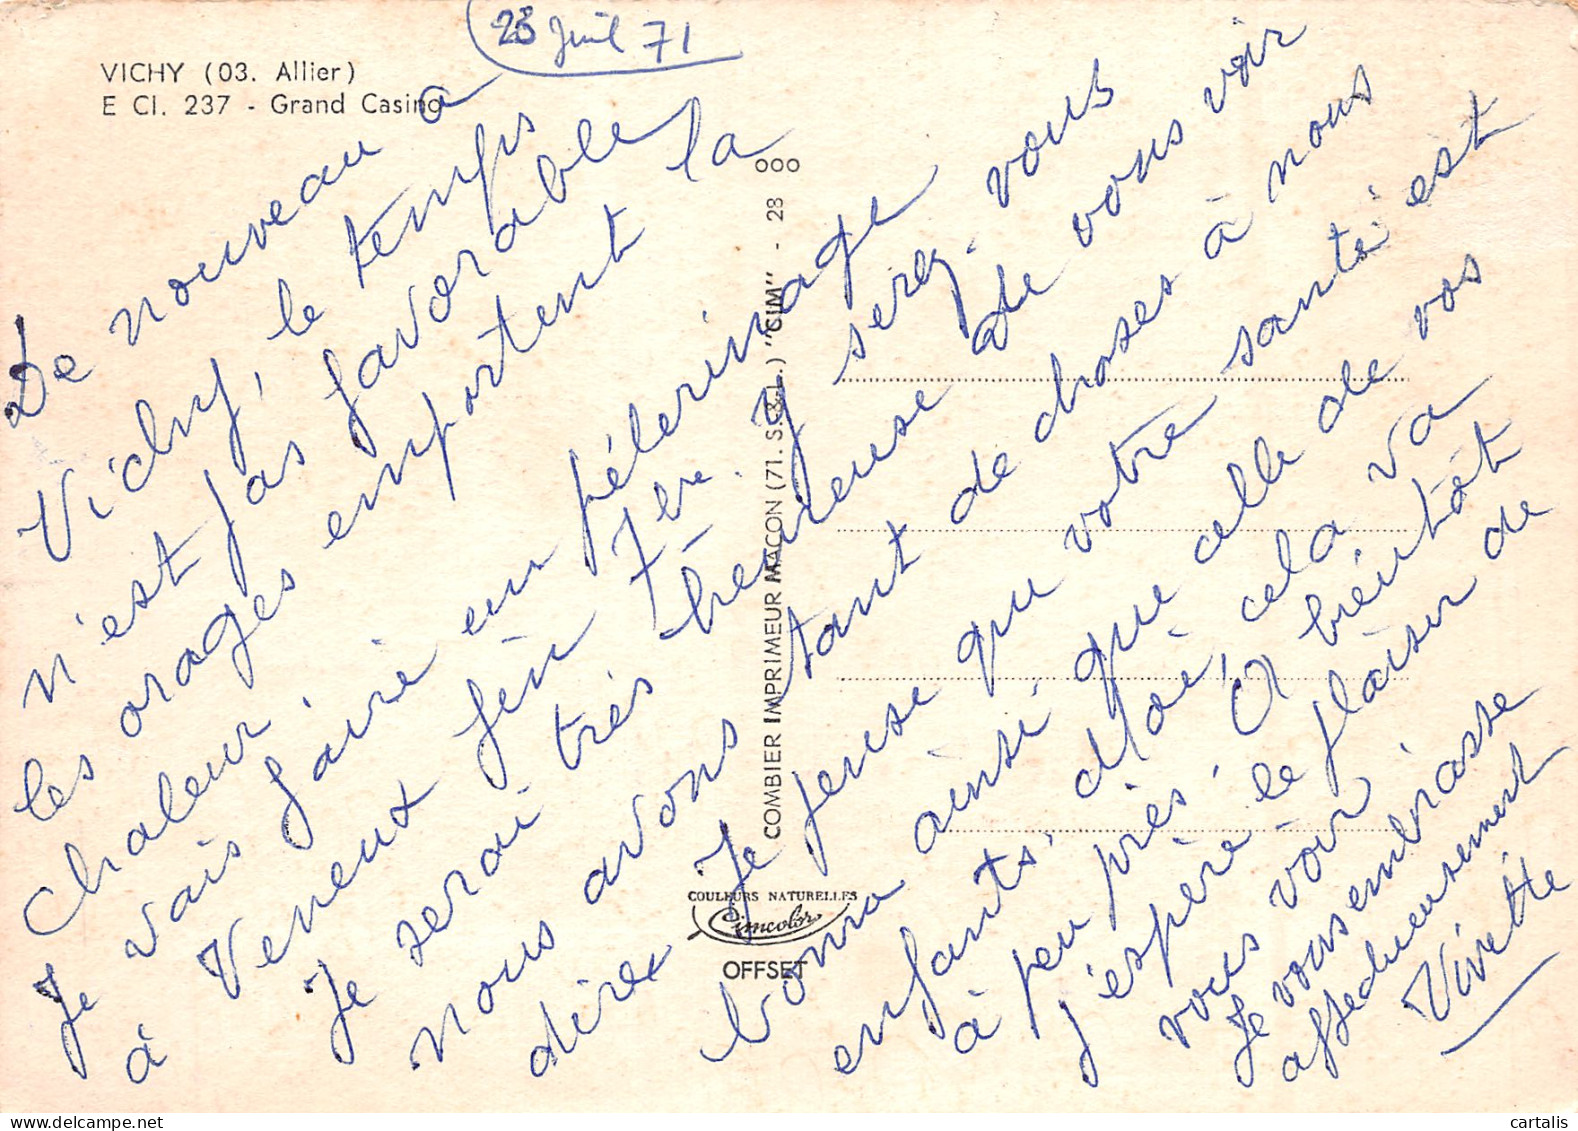 VICHY (03. Allier)
E Cl. 237 - Grand Casino
23 Juil 71
De nouveau à
Vichy, le temps
n'est pas favorable
les orages emportent la
chaleur.
Je vais faire un pélerinage
à Veneux fin 7bre. y serez-vous
Je serai très heureuse de vous voir
nous avons tant de choses à nous
dire. Je pense que votre santé est
bonne ainsi que celle de vos
enfants, moi, cela va
à peu près. A bientôt
j'espère le plaisir de
vous voir
Je vous embrasse
affectueusement
Vivette
COMBIER IMPRIMEUR MACON (71. S.&L.) "CIM" - 28 000
COULEURS NATURELLES
Cimcolor
OFFSET
cartalis